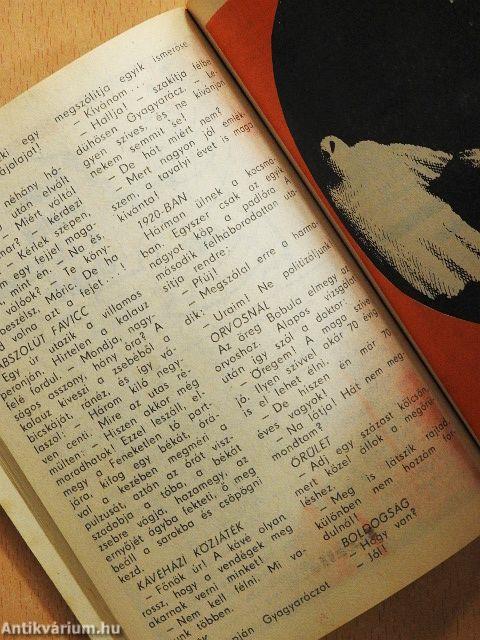 ki egy
néhány hó
után elvált
Miért váltál
– kérdezi
– Kérlek szépen,
m egy fejjel maga-
, mint én. – Na és
– Te köny-
beszélsz, Móric. De ha
volna azt a fejet...!
ABSZOLUT FAVICC
Egy úr utazik a villamos
peronján. Hirtelen a kalauz
felé fordul: – Mondja, nagy-
ságos asszony, hány óra? A
kalauz kiveszi a zsebéből a
bicskáját, ránéz, és így vá-
laszol: – Három kiló negy-
ven centi. – Mire az utas ré-
mülten: – Hiszen akkor még
maradhatok! Ezzel leszáll, el-
megy a Feneketlen tó part-
jára, kifog egy békát, órá-
val a kezében megméri a
pulzusát, aztán az órát visz-
szadobja a tóba, a békát
zsebre vágja, hazamegy, az
ernyőjét ágyba fekteti, ő meg
beáll a sarokba és csöpögni
kezd.
KÁVÉHÁZI KÖZJÁTÉK
– Főnök úr! A kávé olyan
rossz, hogy a vendégek meg
akarnak verni minket!
– Nem kell félni. Mi va-
unk többen.
Gyagyaróczot
megszólítja egyik ismerőse
– Kívánom... – szakítja félbe
– Hallja!
dühösen Gyagyarácz, – le-
gyen szíves, és ne kívánjon
nekem semmit se!
– De hát miért nem?
– Mert nagyon jól emlék-
szem, a tavalyi évet is maga
kívánta!
1920-BAN
Hárman ülnek a kocsmá-
ban. Egyszer csak az egyik
nagyot köp a padlóra. A
második felháborodottan uta-
sítja rendre:
– Pfuj!
– Megszólal erre a harma-
dik:
– Uraim! Ne politizáljunk!
ORVOSNÁL
Az öreg Bobula elmegy az
orvoshoz. Alapos vizsgálat
után így szól a doktor:
– Öregem! A maga szíve
jó. Ilyen szívvel akár 70 évig
is el lehet élni.
– De hiszen én már 70
éves vagyok!
– Na látja! Hát nem meg-
mondtam?
ŐRÜLET
– Adj egy százast kölcsön,
mert közel állok a megőrü-
léshez.
– Meg is látszik rajtad,
különben nem hozzám for-
dulnál.
BOLDOGSÁG
– Hogy van?
– Jól!
Antikvárium.hu